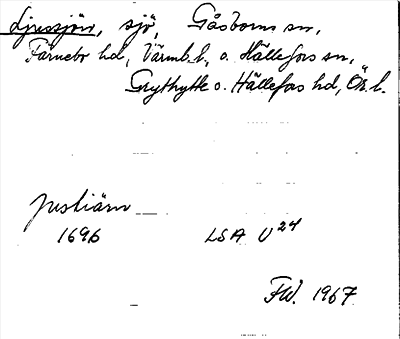 Ljussjön, sjö, Gåsborns sn,
Färnebo hd, Värml. l., o. Hällefors sn,
Grythytte o. Hällefors hd, Ör. l.
Jusiärn
1696 LSA U 24
FW. 1967